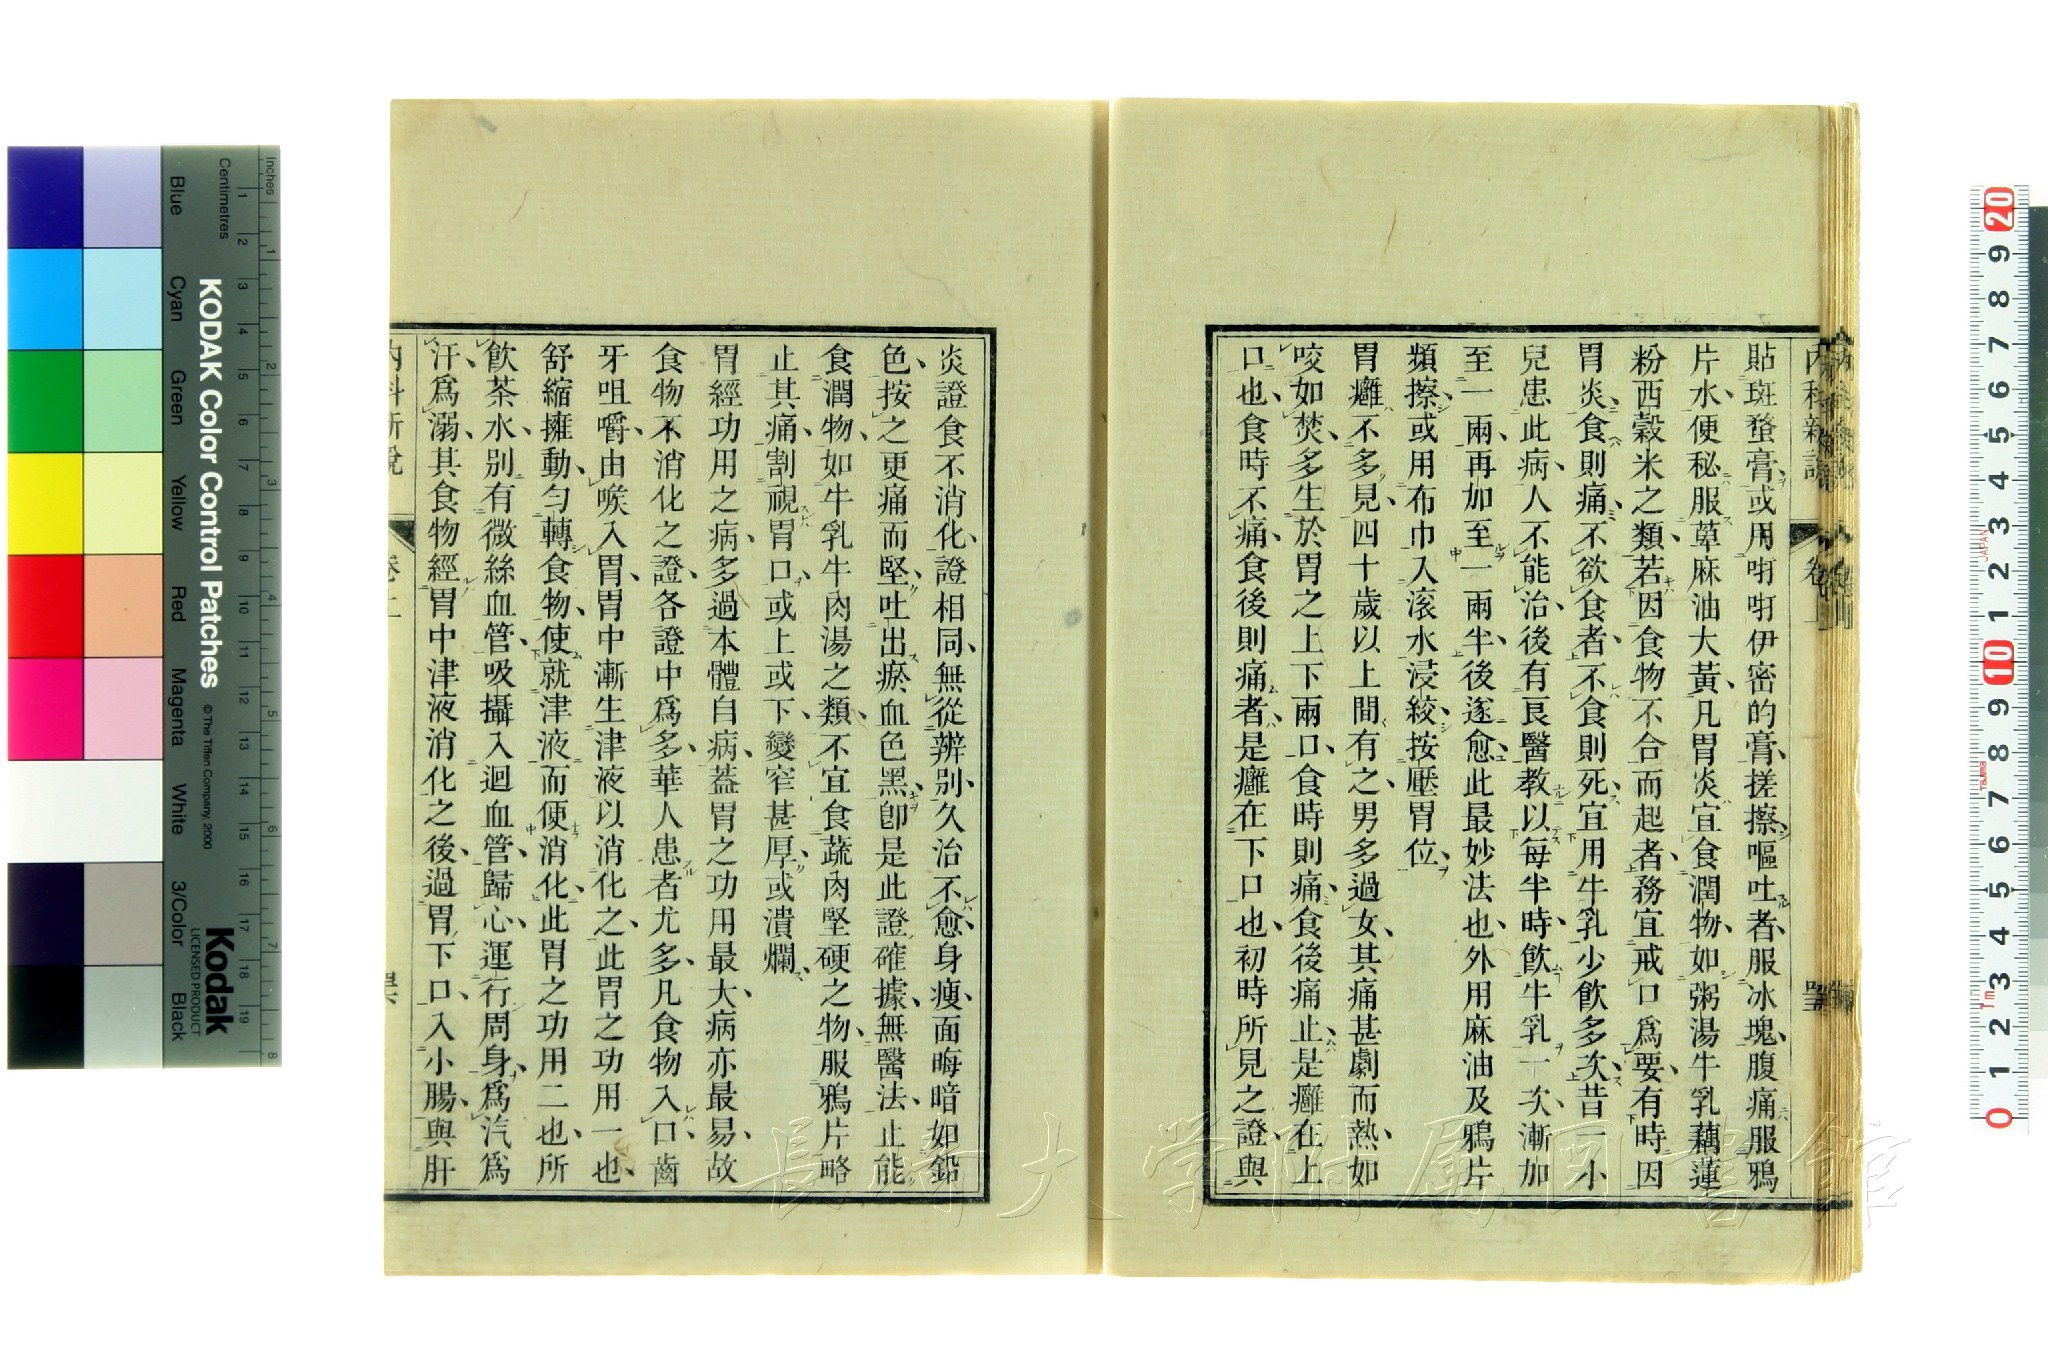 貼斑蝥膏或用啩啩伊密的膏搓擦嘔吐者服冰塊腹痛服鴉
片水便秘服萆麻油大黃凡胃炎宜食潤物如粥湯牛乳藕蓮
粉西穀米之類若因食物不合而起者務宜戒口爲要有時因
胃炎食則痛不欲食者不食則死宜用牛乳少飮多次昔一小
兒患此病人不能治後有良醫教以每半時飮牛乳一次漸加
至一兩再加至一兩半後逐愈此最妙法也外用麻油及鴉片
頻擦或用布巾入滚水浸絞按壓胃位
胃癰不多見四十歲以上間有之男多過女其痛甚劇而熱如
咬如焚多生於胃之上下兩口食時則痛食後痛止是癰在上
口也食時不痛食後則痛者是癰在下口也初時所見之證與
炎證食不消化證相同無從辨别久治不愈身瘦面晦暗如鉛
色按之更痛而堅吐出瘀血色黑卽是此證確據無醫法止能
食潤物如牛乳牛肉湯之類不宜食蔬肉堅硬之物服鴉片略
止其痛割視胃口或上或下變窄甚厚或潰爛
胃經功用之病多過本體自病葢胃之功用最大病亦最易故
食物不消化之證各證中爲多華人患者尤多凡食物入口齒
牙咀嚼由喉入胃胃中漸生津液以消化之此胃之功用一也
舒縮擁動勻轉食物使就津液而便消化此胃之功用二也所
飮茶水别有微絲血管吸攝入迴血管歸心運行周身爲汽爲
汗爲溺其食物經胃中津液消化之後過胃下口入小腸與肝
内科新說
卷上
内科新說
卷上
長崎大学附属図書館
KODAK Color Control Patches
© The Tiffen Company, 2000
Kodak
LICENSED PRODUCT
Inches
Centimetres
Blue
Cyan
Green
Yellow
Red
Magenta
White
3/Color
Black
JAPAN